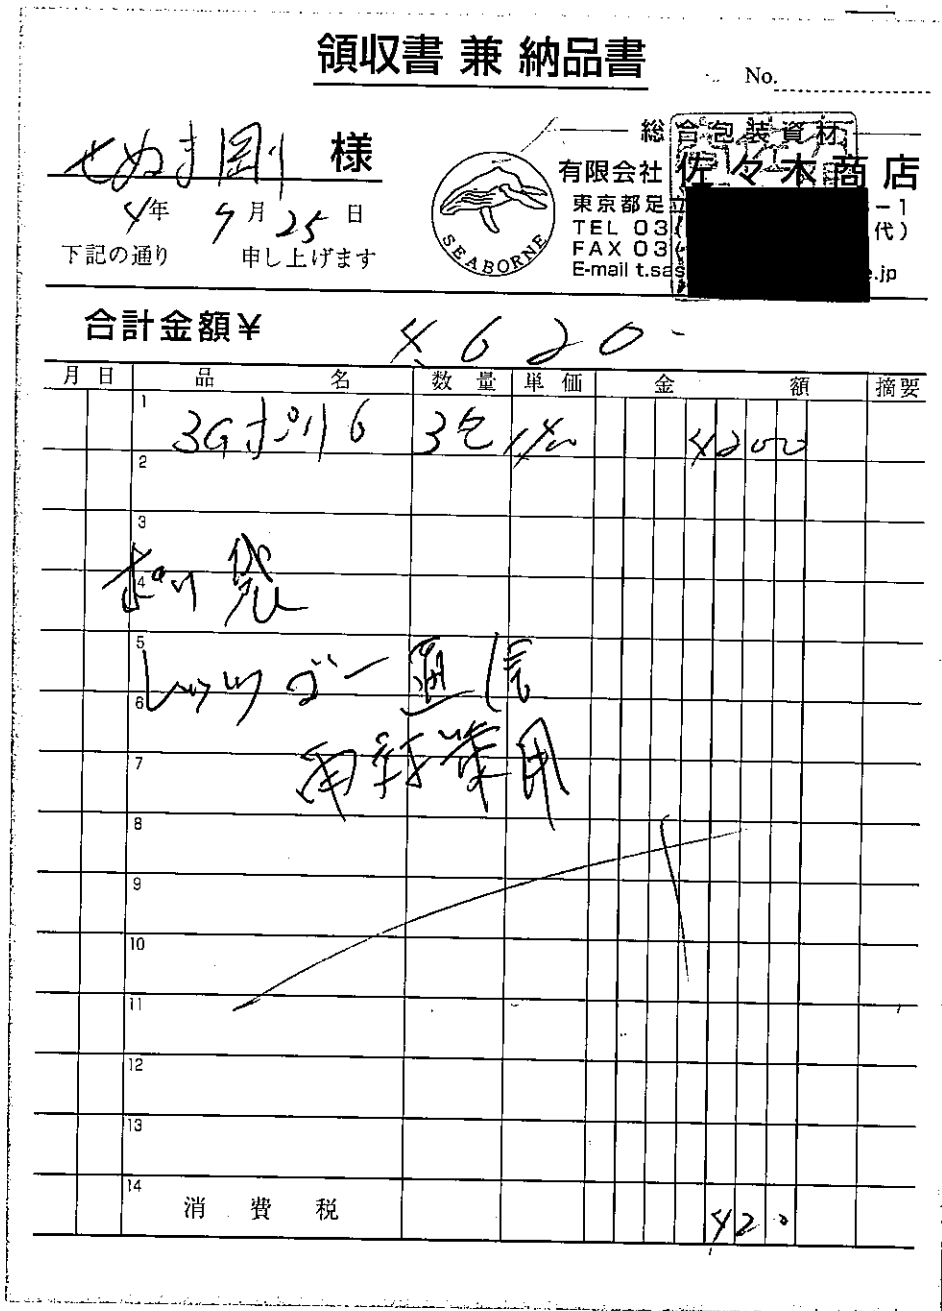 領収書 兼 納品書
No.
せぬま剛 様
4年 9月 25日
下記の通り 申し上げます
総合包装資材
有限会社 佐々木商店
東京都足立 -1
TEL 03( 代)
FAX 03(
E-mail t.sas e.jp
SEABORNE
合計金額¥ 4620-
月 日 品 名 数 量 単 価 金 額 摘要
1 3Gポリ6 3 1400 4200
2
3
4 ポリ袋
5
6 レッツゴー通信
7
8
9
10
11
12
13
14
消 費 税 420